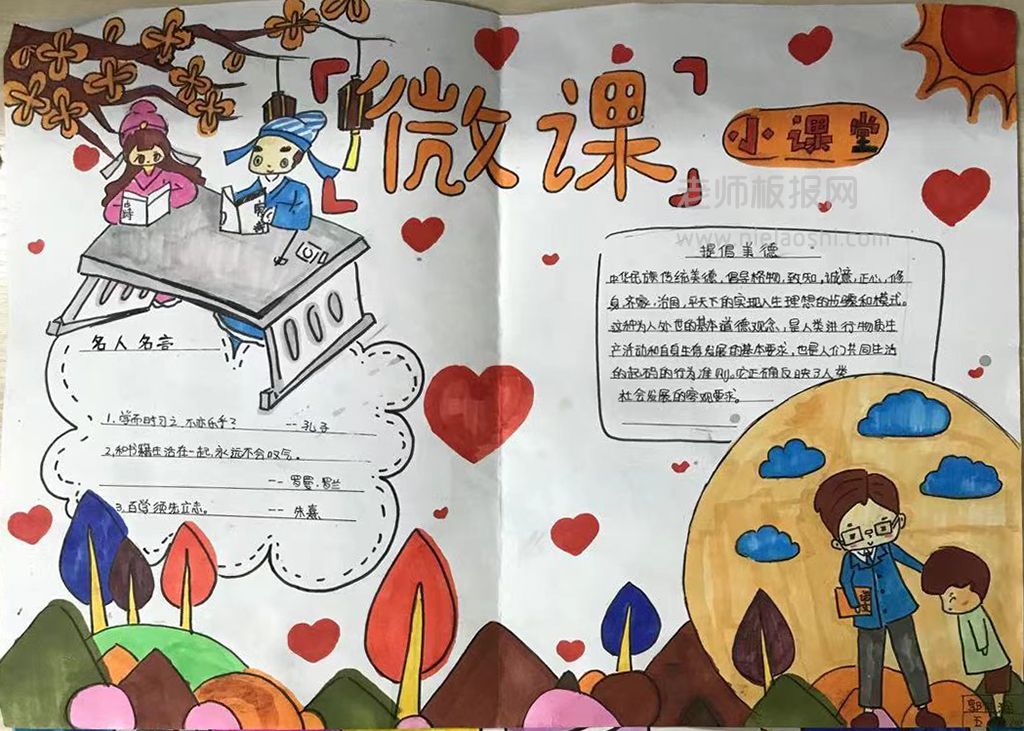 「微课」
小课堂
老师板报网
www.plelaoshi.com
古诗
名人名言
1、学而时习之 不亦乐乎？ -- 孔子
2、和书籍生活在一起，永远不会叹气。
-- 罗曼·罗兰
3、百学须先立志。 -- 朱熹
提倡美德
中华民族传统美德，倡导格物，致知，诚意，正心，修
身，齐家，治国，平天下的实现人生理想的步骤和模式。
这种为人处世的基本道德观念，是人类进行物质生
产活动和自身生存发展的基本要求，也是人们共同生活
的起码的行为准则。它正确反映了人类
社会发展的客观要求。